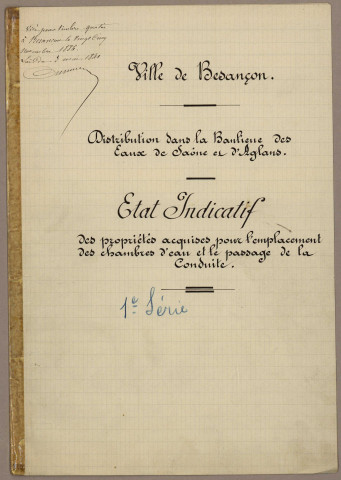 Vu pour timbre, quatre
à Besançon le Vingt Cinq
Novembre 1886.
Ville de Besançon.
Distribution dans la Banlieue des
Eaux de Saône et d'Aglans.
Etat Indicatif
des propriétés acquises pour l'emplacement
des chambres d'eau et le passage de la
Conduite.
1e Série